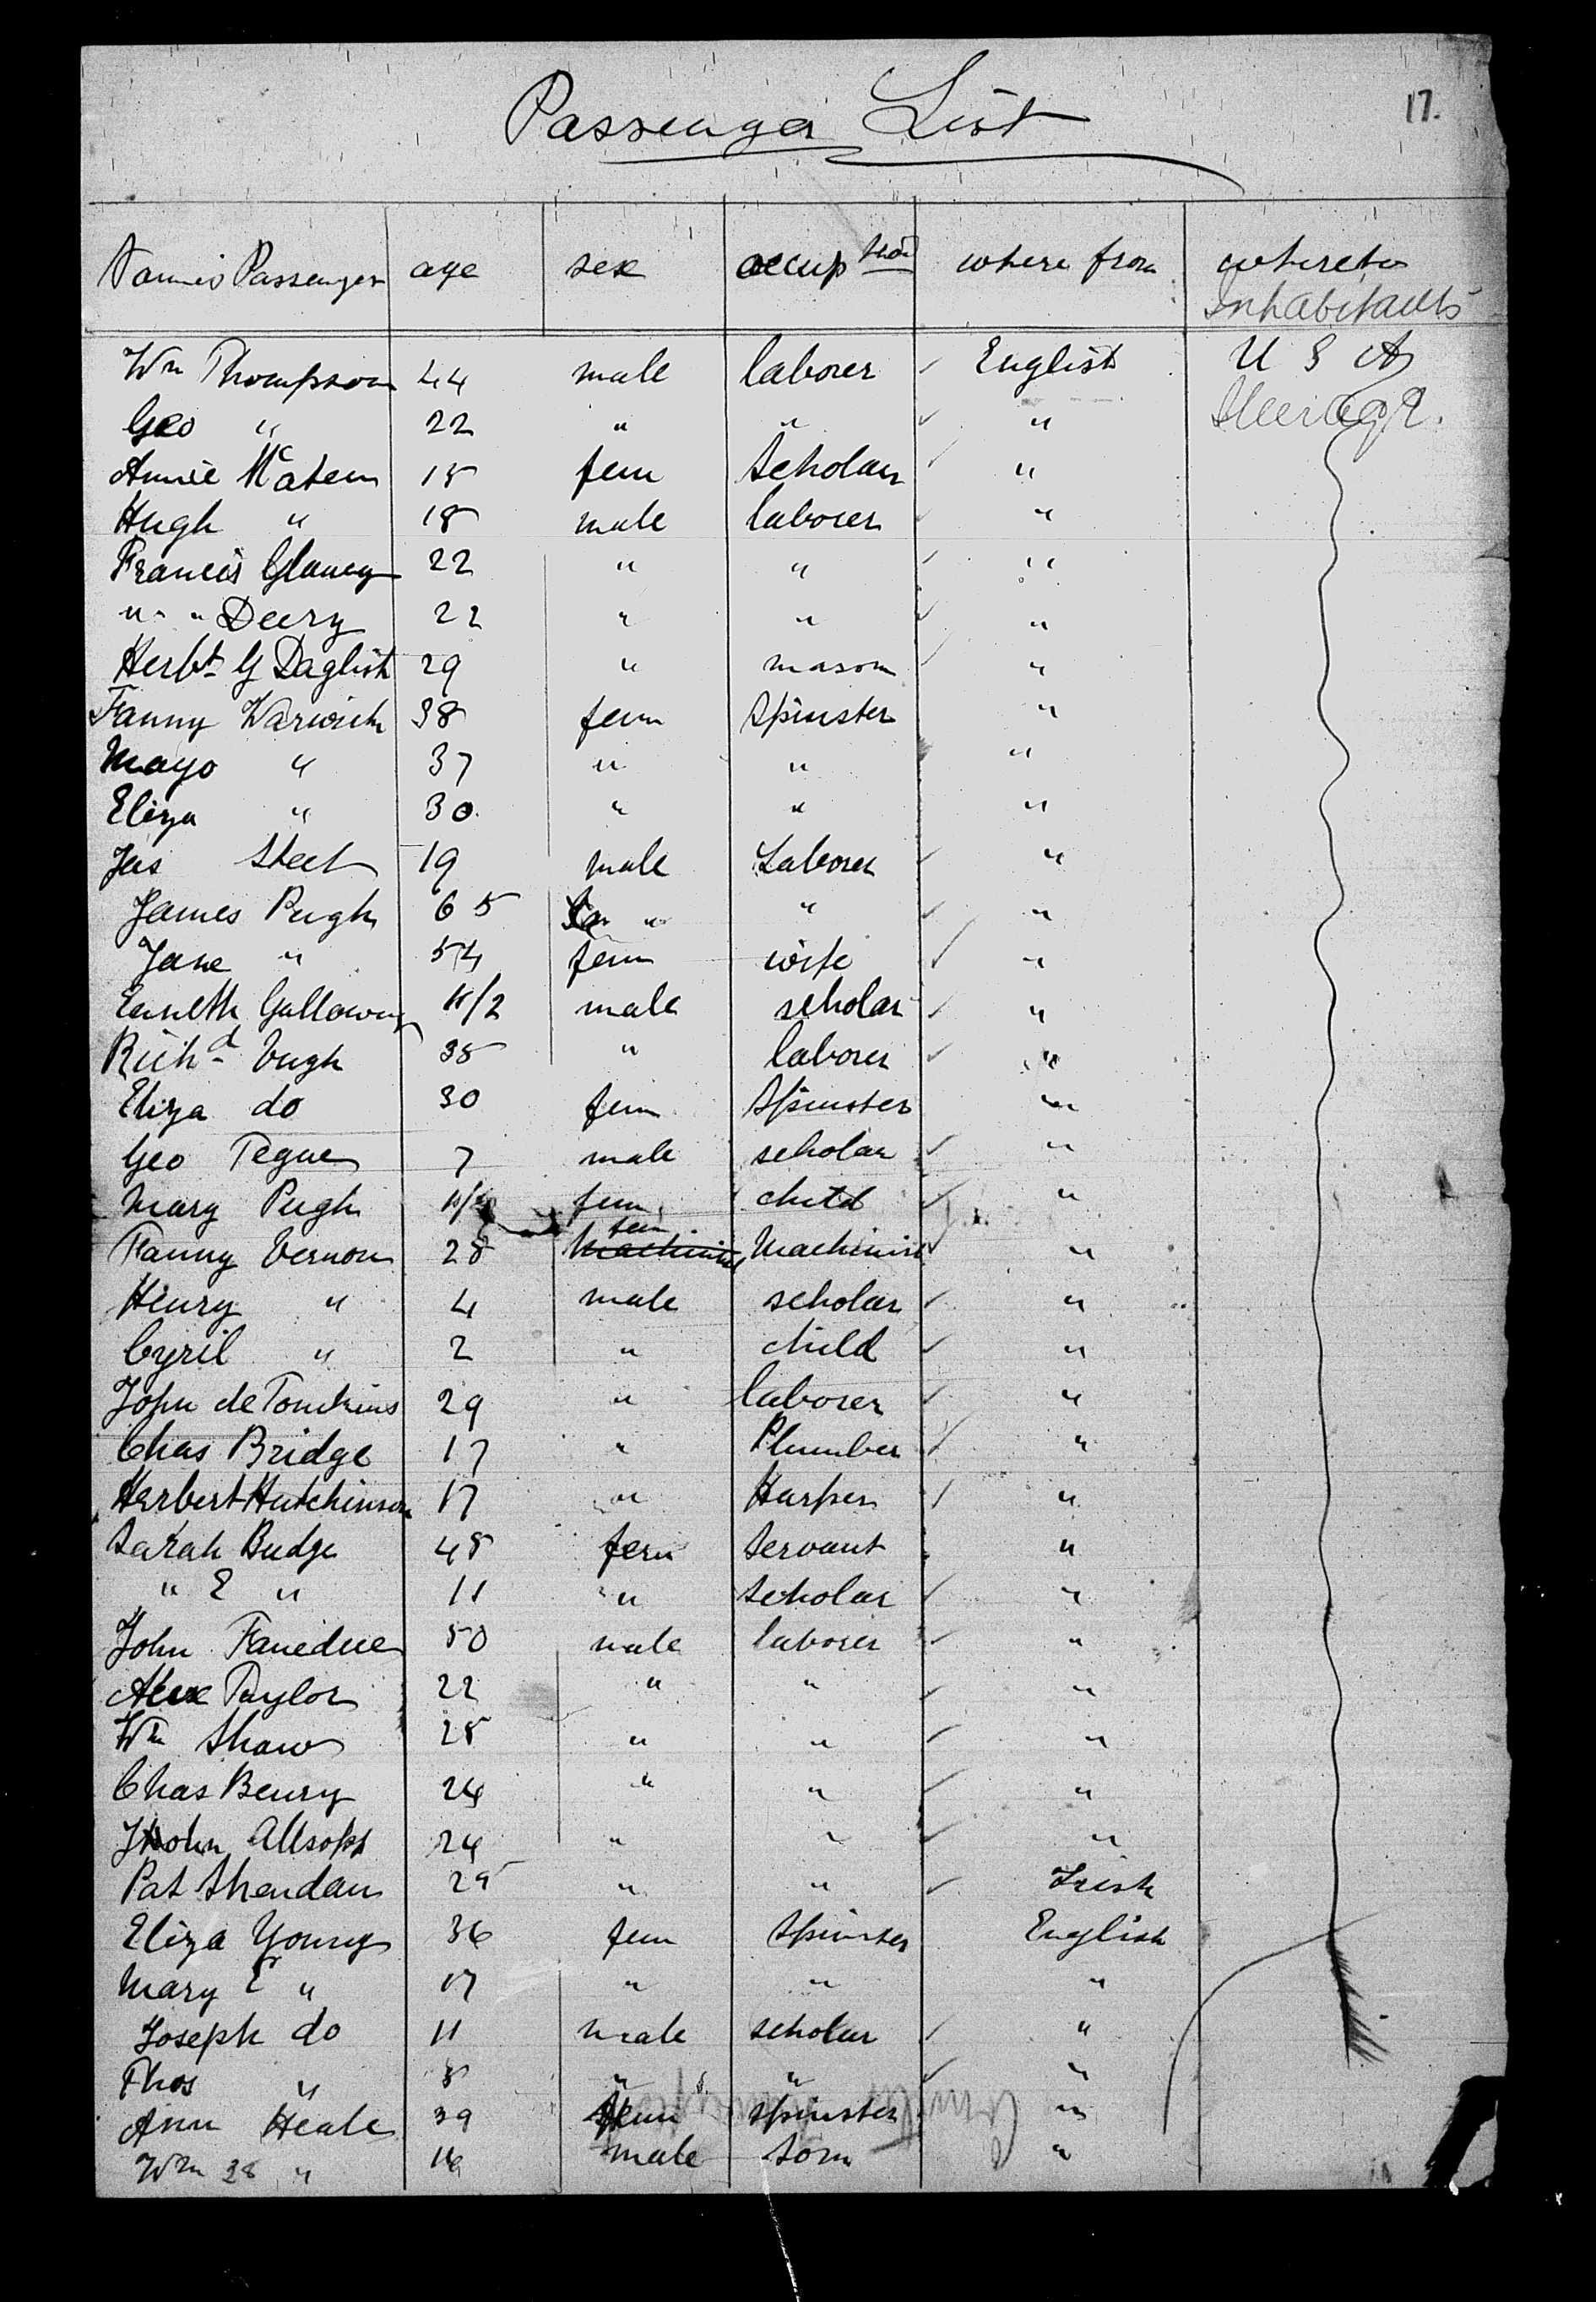 17.
Passenger List
Names Passenger age sex occup tion where from whereto
Inhabitants
Wm Thompson 44 male laborer ✓ English U S A
Geo " 22 " " ✓ "
Annie 15 fem Scholar ✓ "
Hugh " 18 male laborer ✓ "
Francis Glancy 22 " " ✓ "
" " Deery 22 " " ✓ "
Herbt G Daglish 29 " mason ✓ "
Fanny Warwick 38 fem Spinster "
Mayo " 37 " " "
Eliza " 30 " " "
Jas Steel 19 male Laborer ✓ "
James Pugh 65 " " ✓ "
Jane " 54 fem wife ✓ "
Galloway 11/2 male scholar ✓ "
Richd Vugh 35 " laborer ✓ "
Eliza do 30 fem Spinster "
Geo Tegue 7 male scholar ✓ "
Mary Pugh fem child ✓ "
Fanny Vernon 28 fem Machinist ✓ "
Henry " 4 male scholar ✓ "
Cyril " 2 " child ✓ "
John de Tomkins 29 " laborer ✓ "
Chas Bridge 17 " Plumber ✓ "
Herbert Hutchinson 17 " Harper ✓ "
Sarah Budge 48 fem Servant "
" E " 11 " Scholar ✓ "
John 50 male laborer ✓ "
Alex Taylor 22 " " ✓ "
Wm Shaw 28 " " ✓ "
Chas Beury 24 " " ✓ "
John Allsopp 24 " " ✓ "
Pat Sheridan 25 " " ✓ Irish
Eliza Young 36 fem Spinster English
Mary E " 17 " " "
Joseph do 11 male scholar ✓ "
Thos " 8 " " ✓ "
Ann Heale 39 fem spinster "
Wm 38 " 16 male Son "